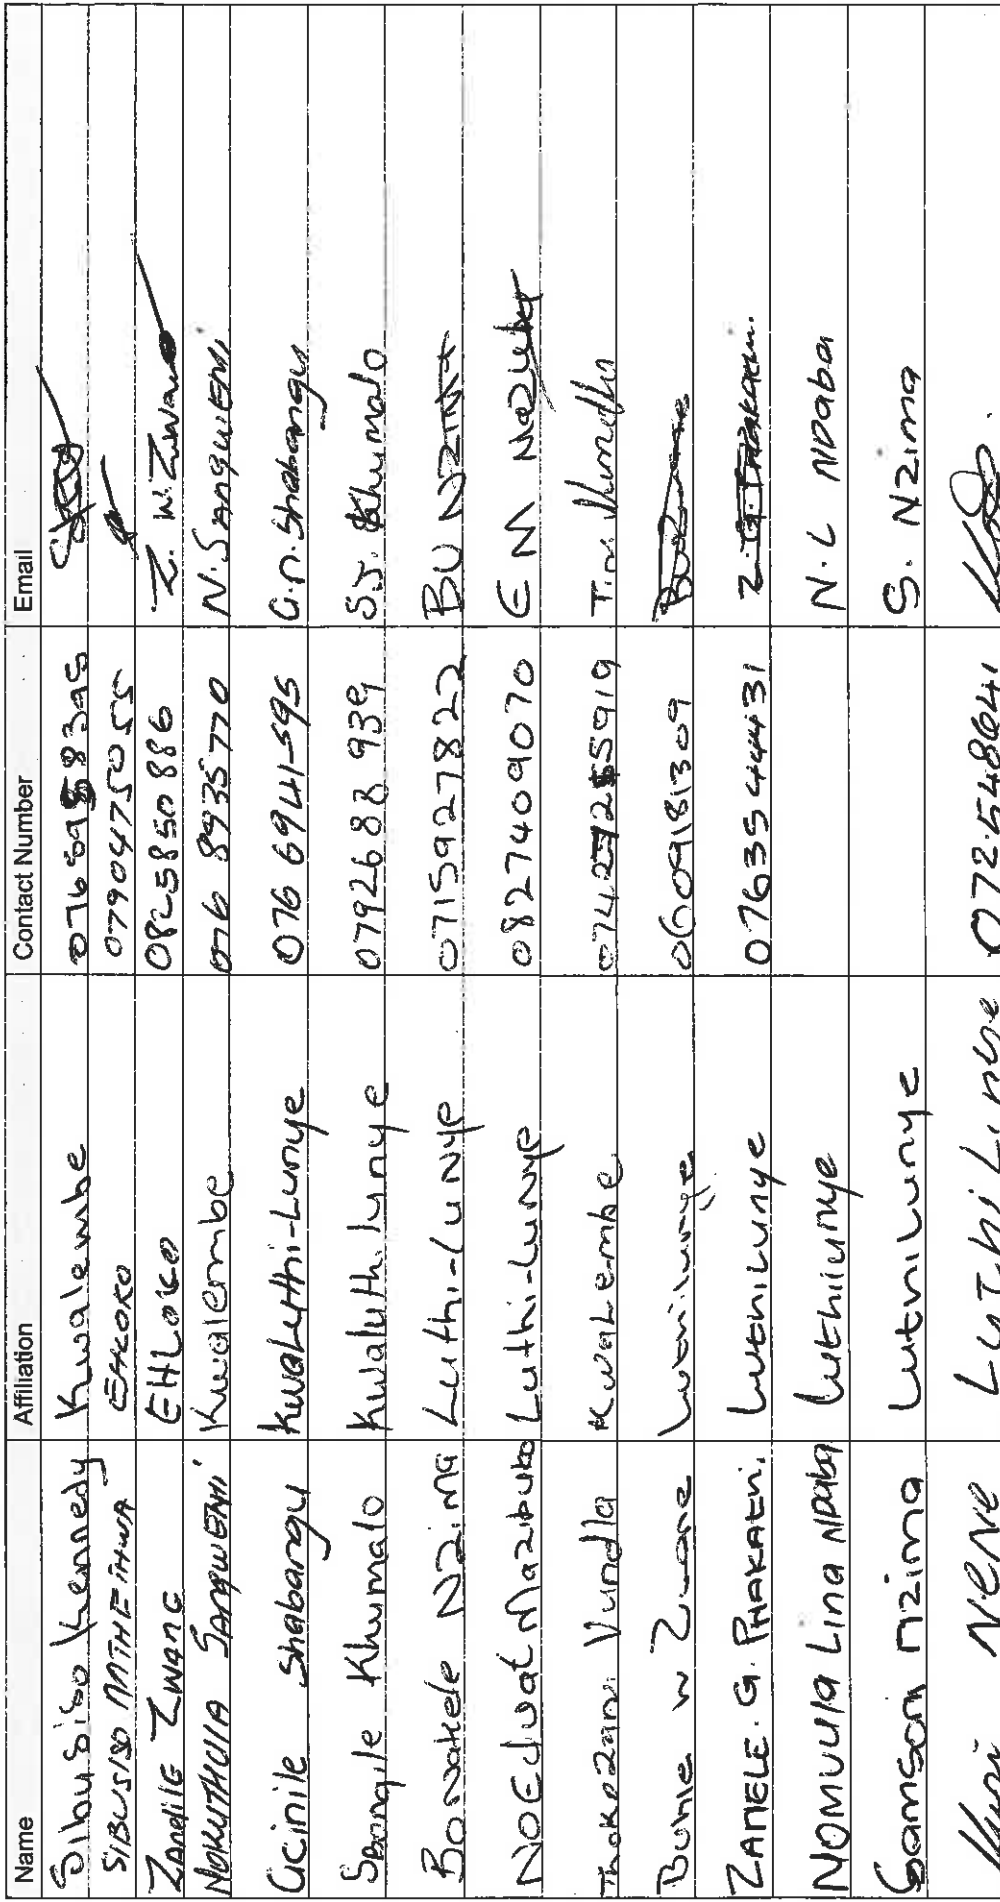 Name Affiliation Contact Number Email
Sibusiso Kennedy Kwalembe
SIBUSISO MTHETHWA EHLOKO 0790475055
Zandile Zwane EHLOKO 0825850886 Z. W. Zwane
NOKUTHULA SANGWENI Kwalembe 076 8935770 N. SANGWENI
Gcinile Shabangu KwaLuthi-Lunye 076 6941595 G.n. Shabangu
Sbongile Khumalo Kwaluthilunye 0792688939 S.J. Khumalo
Bonakele Nzima Luthi-Lunye 0715927822 BU NZIMA
NoEdwat Mazibuko Luthi-Lunye 0827409070 EM Mazibuko
Thokozani Vundla KwaLembe
Buhle w Zwane Luthilunye 0609181309
ZANELE. G. PHAKATHI. Luthilunye 0763544431 Z. G. PHAKATHI.
NOMVULA Lina NDABA Luthilunye N. L NDaba
Samson nzima Luthilunye S. Nzima
Nene LuThiLunye 072 5548641